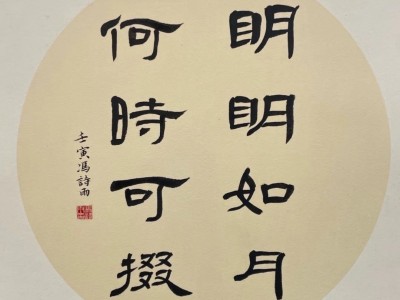 明明如月
何時可掇
壬寅馮詩雨